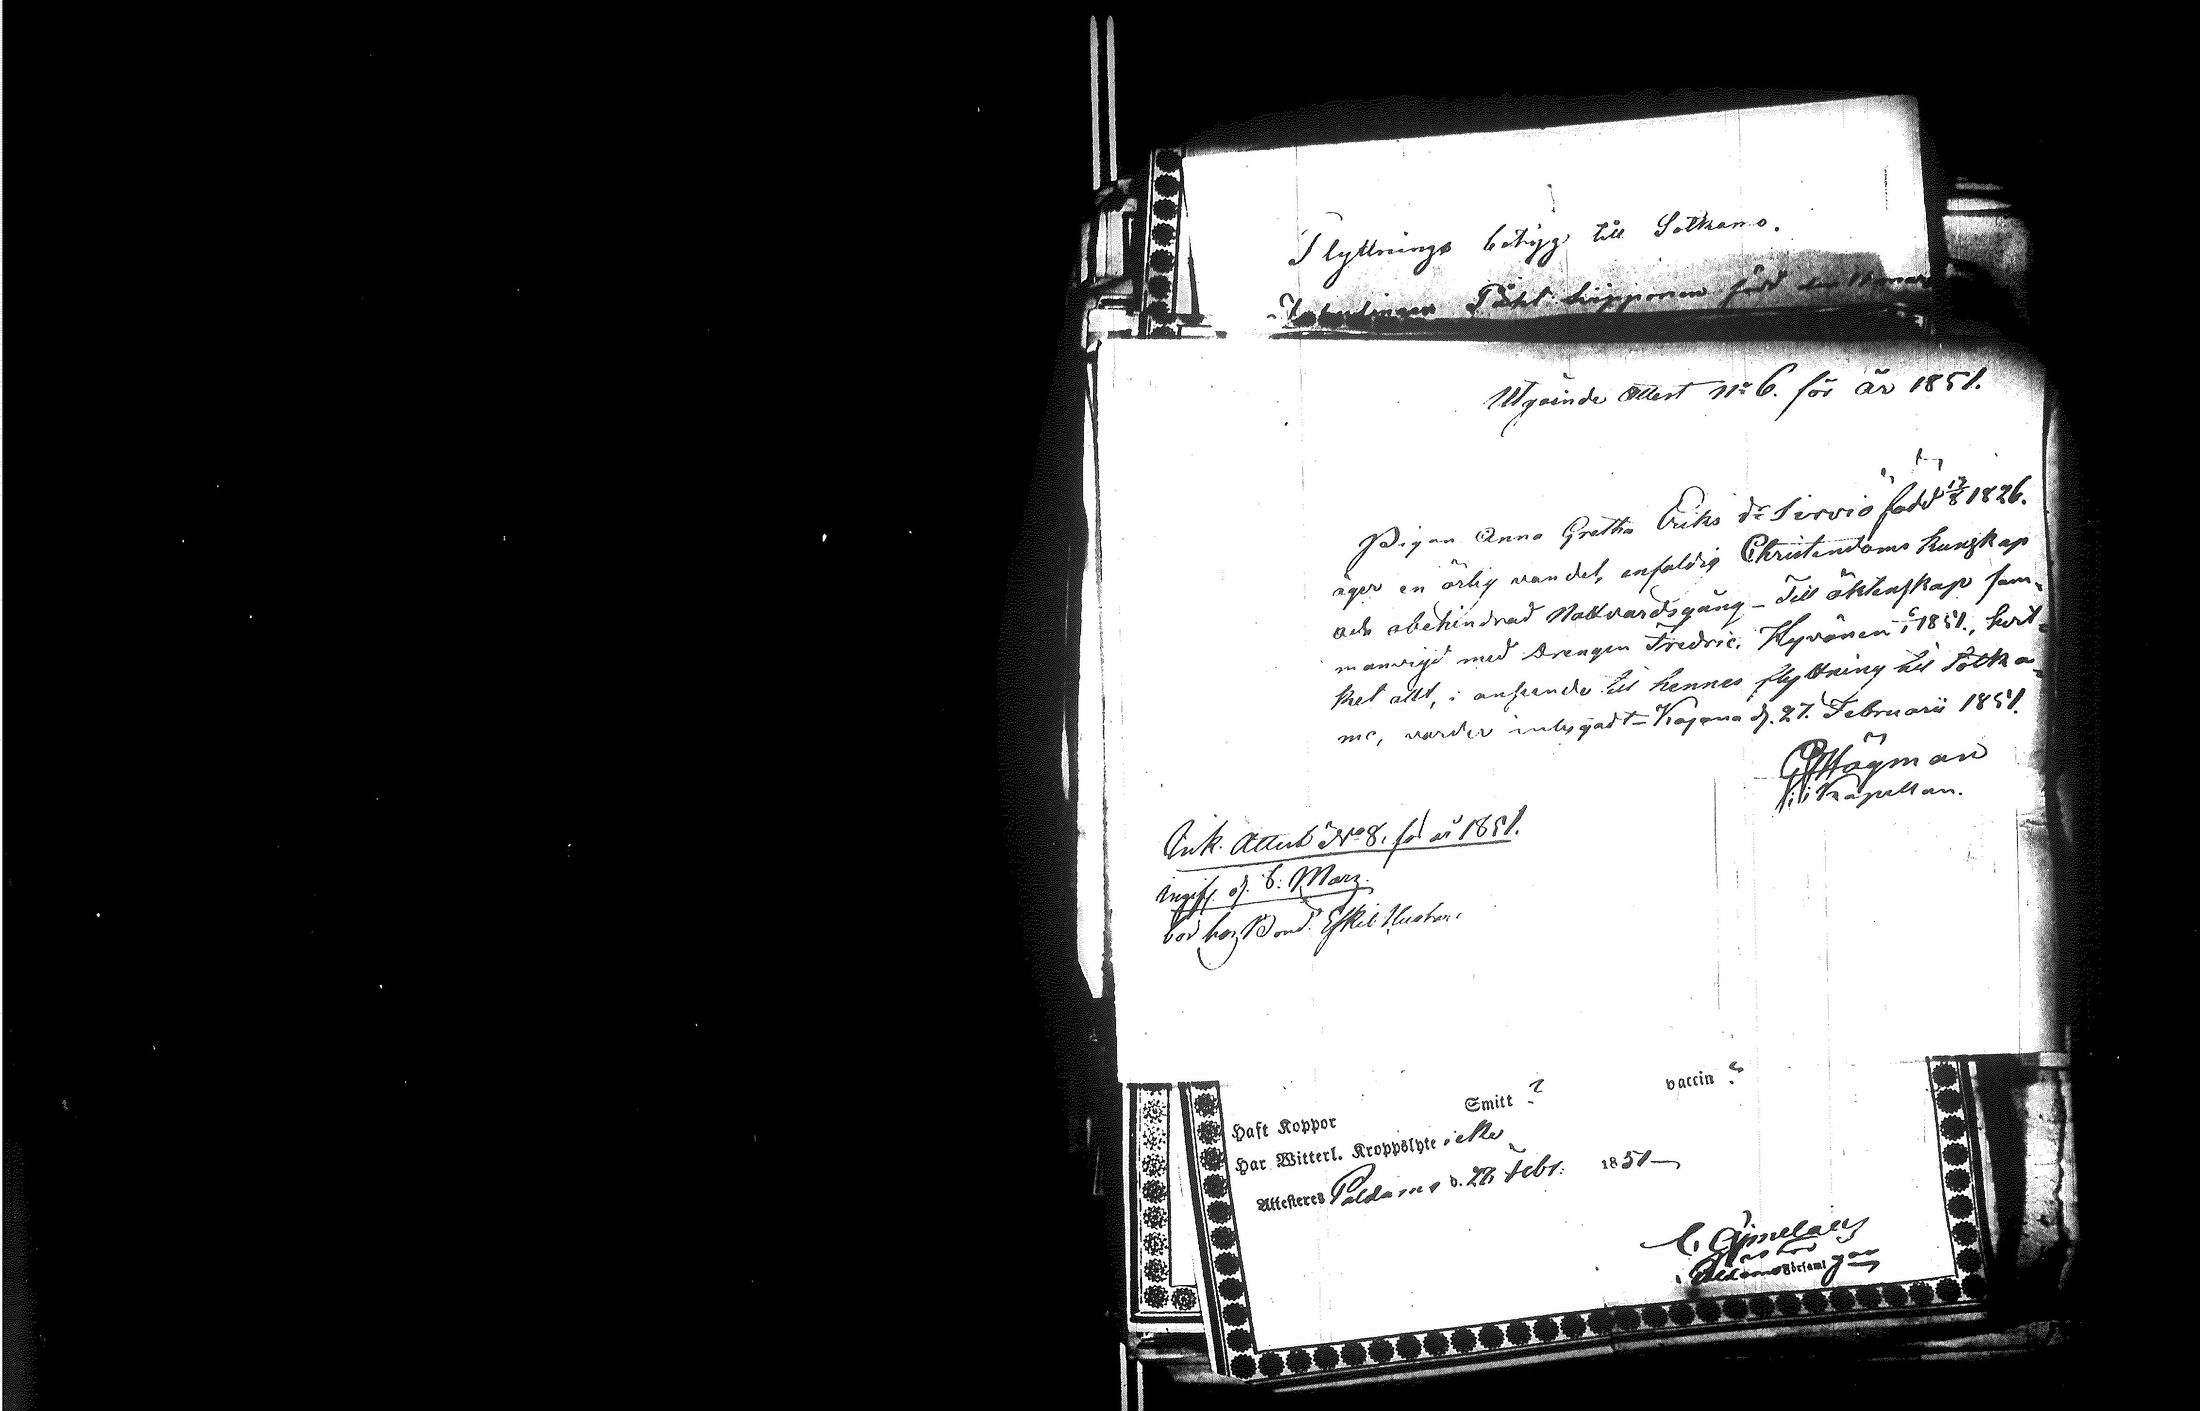 Flyttnings betyg till Sotkamo.
född den
Utgående Attest No 6. för år 1851.
Pigan Anna Gretha Eriks dr Sirviö född 17/8 1826.
äger en ärlig vandel, enfaldig Christendoms kunskap
och obehindrad Nattvardsgång – Till äktenskap sam-
manvigd med Drengen Fredric Hyvönen i 1851., hvil-
ket allt, i anseende till hennes flyttning till Sotka-
mo, varder intygadt – Kajana d. 27. Februarii 1851.
Högman
Kapellan.
Ank. Attest No 8. för år 1851.
ingif. d. 6. Marz.
bor hoz Bond. Eskil
Haft Koppor Smitt ? vaccin ?
Har Witterl. Kroppslyte icke
Attesteres Paldamo d. 26 Febr. 1851
C. Ajmelaeus
Pastor
i Paldamo församl